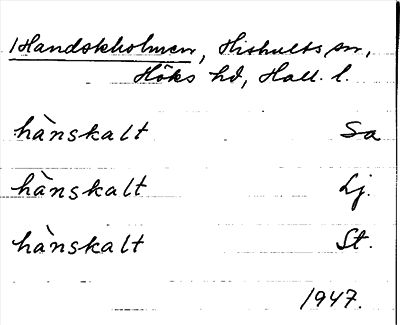 Handskholmen, Hishults sn,
Höks hd, Hall. l.
hànskalt Sa
hànskalt Lj.
hànskalt St.
1947.